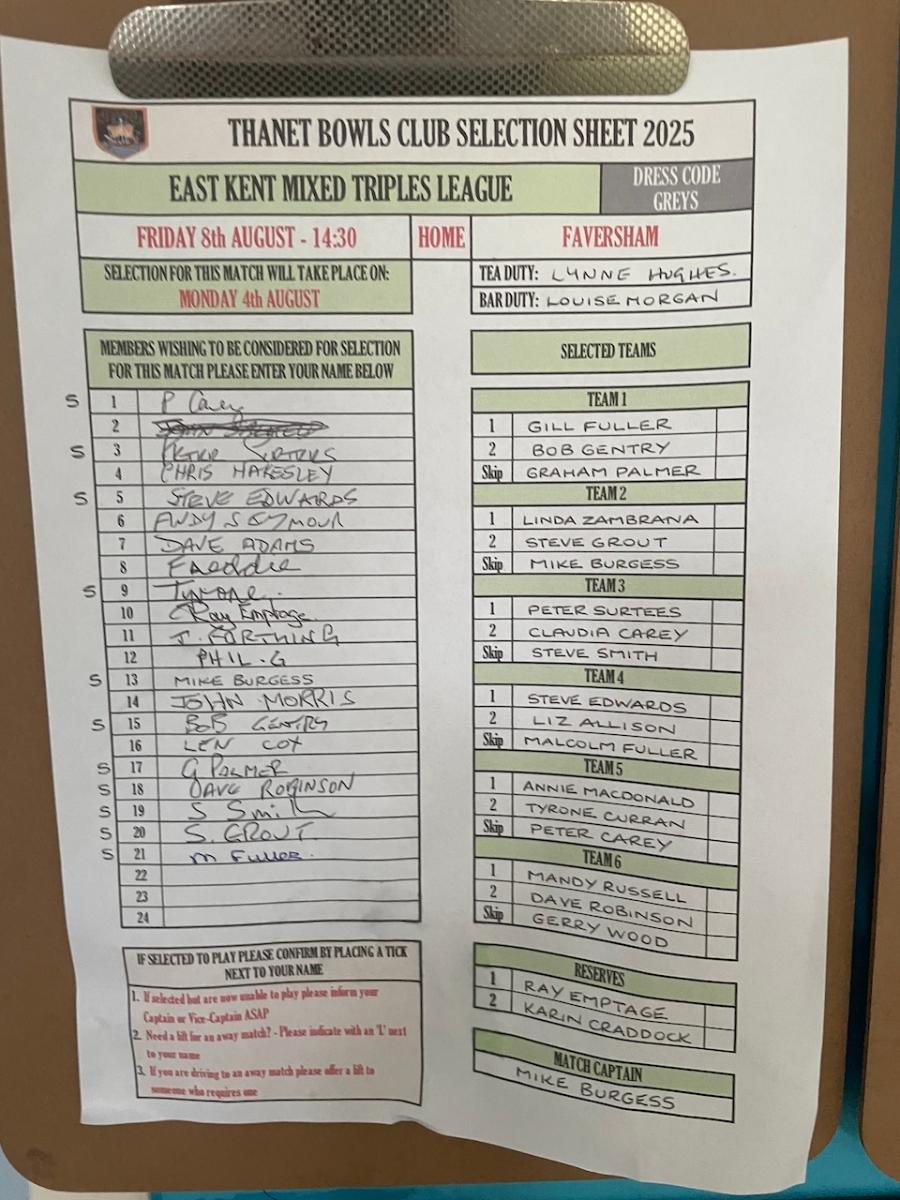 THANET BOWLS CLUB SELECTION SHEET 2025
EAST KENT MIXED TRIPLES LEAGUE
DRESS CODE
GREYS
FRIDAY 8th AUGUST - 14:30
HOME
FAVERSHAM
SELECTION FOR THIS MATCH WILL TAKE PLACE ON:
MONDAY 4th AUGUST
TEA DUTY: LYNNE HUGHES.
BAR DUTY: LOUISE MORGAN
MEMBERS WISHING TO BE CONSIDERED FOR SELECTION
FOR THIS MATCH PLEASE ENTER YOUR NAME BELOW
S 1 P Carey
2
S 3
4 CHRIS HAKESLEY
S 5 STEVE EDWARDS
6 ANDY SEYMOUR
7 DAVE ADAMS
8 Freddie
S 9 Tyrone.
10 Ray Emptage
11 J. FORTHING
12 PHIL.G
S 13 MIKE BURGESS
14 JOHN MORRIS
S 15 BOB GENTRY
16 LEN COX
S 17 G PALMER
S 18 DAVE ROBINSON
S 19 S Smith
S 20 S. GROUT.
S 21 M FULLER.
22
23
24
SELECTED TEAMS
TEAM 1
1 GILL FULLER
2 BOB GENTRY
Skip GRAHAM PALMER
TEAM 2
1 LINDA ZAMBRANA
2 STEVE GROUT
Skip MIKE BURGESS
TEAM 3
1 PETER SURTEES
2 CLAUDIA CAREY
Skip STEVE SMITH
TEAM 4
1 STEVE EDWARDS
2 LIZ ALLISON
Skip MALCOLM FULLER
TEAM 5
1 ANNIE MACDONALD
2 TYRONE CURRAN
Skip PETER CAREY
TEAM 6
1 MANDY RUSSELL
2 DAVE ROBINSON
Skip GERRY WOOD
RESERVES
1 RAY EMPTAGE
2 KARIN CRADDOCK
MATCH CAPTAIN
MIKE BURGESS
IF SELECTED TO PLAY PLEASE CONFIRM BY PLACING A TICK
NEXT TO YOUR NAME
1. If selected but are now unable to play please inform your
Captain or Vice-Captain ASAP
2. Need a lift for an away match? - Please indicate with an 'L' next
to your name
3. If you are driving to an away match please offer a lift to
someone who requires one